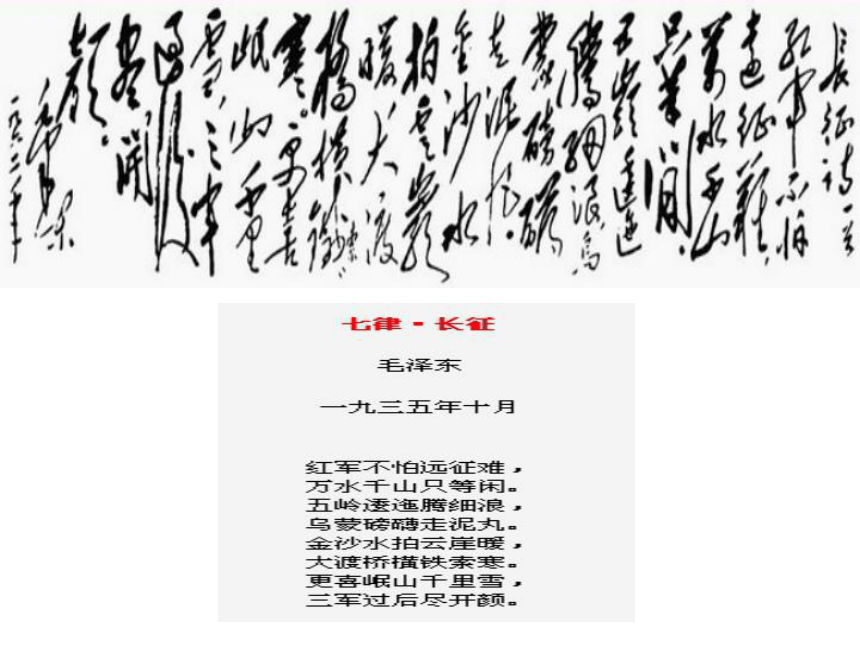 長征詩一首
紅軍不怕
遠征難，
萬水千山
只等閒。
五嶺逶迤
騰細浪，烏
蒙磅礴
走泥丸。
金沙水
拍雲崖
暖，大渡
橋横鐵索
寒。更喜
岷山千里
雪，三軍
過後
盡開
顏。
毛澤東
七律·长征
毛泽东
一九三五年十月
红军不怕远征难，
万水千山只等闲。
五岭逶迤腾细浪，
乌蒙磅礴走泥丸。
金沙水拍云崖暖，
大渡桥横铁索寒。
更喜岷山千里雪，
三军过后尽开颜。